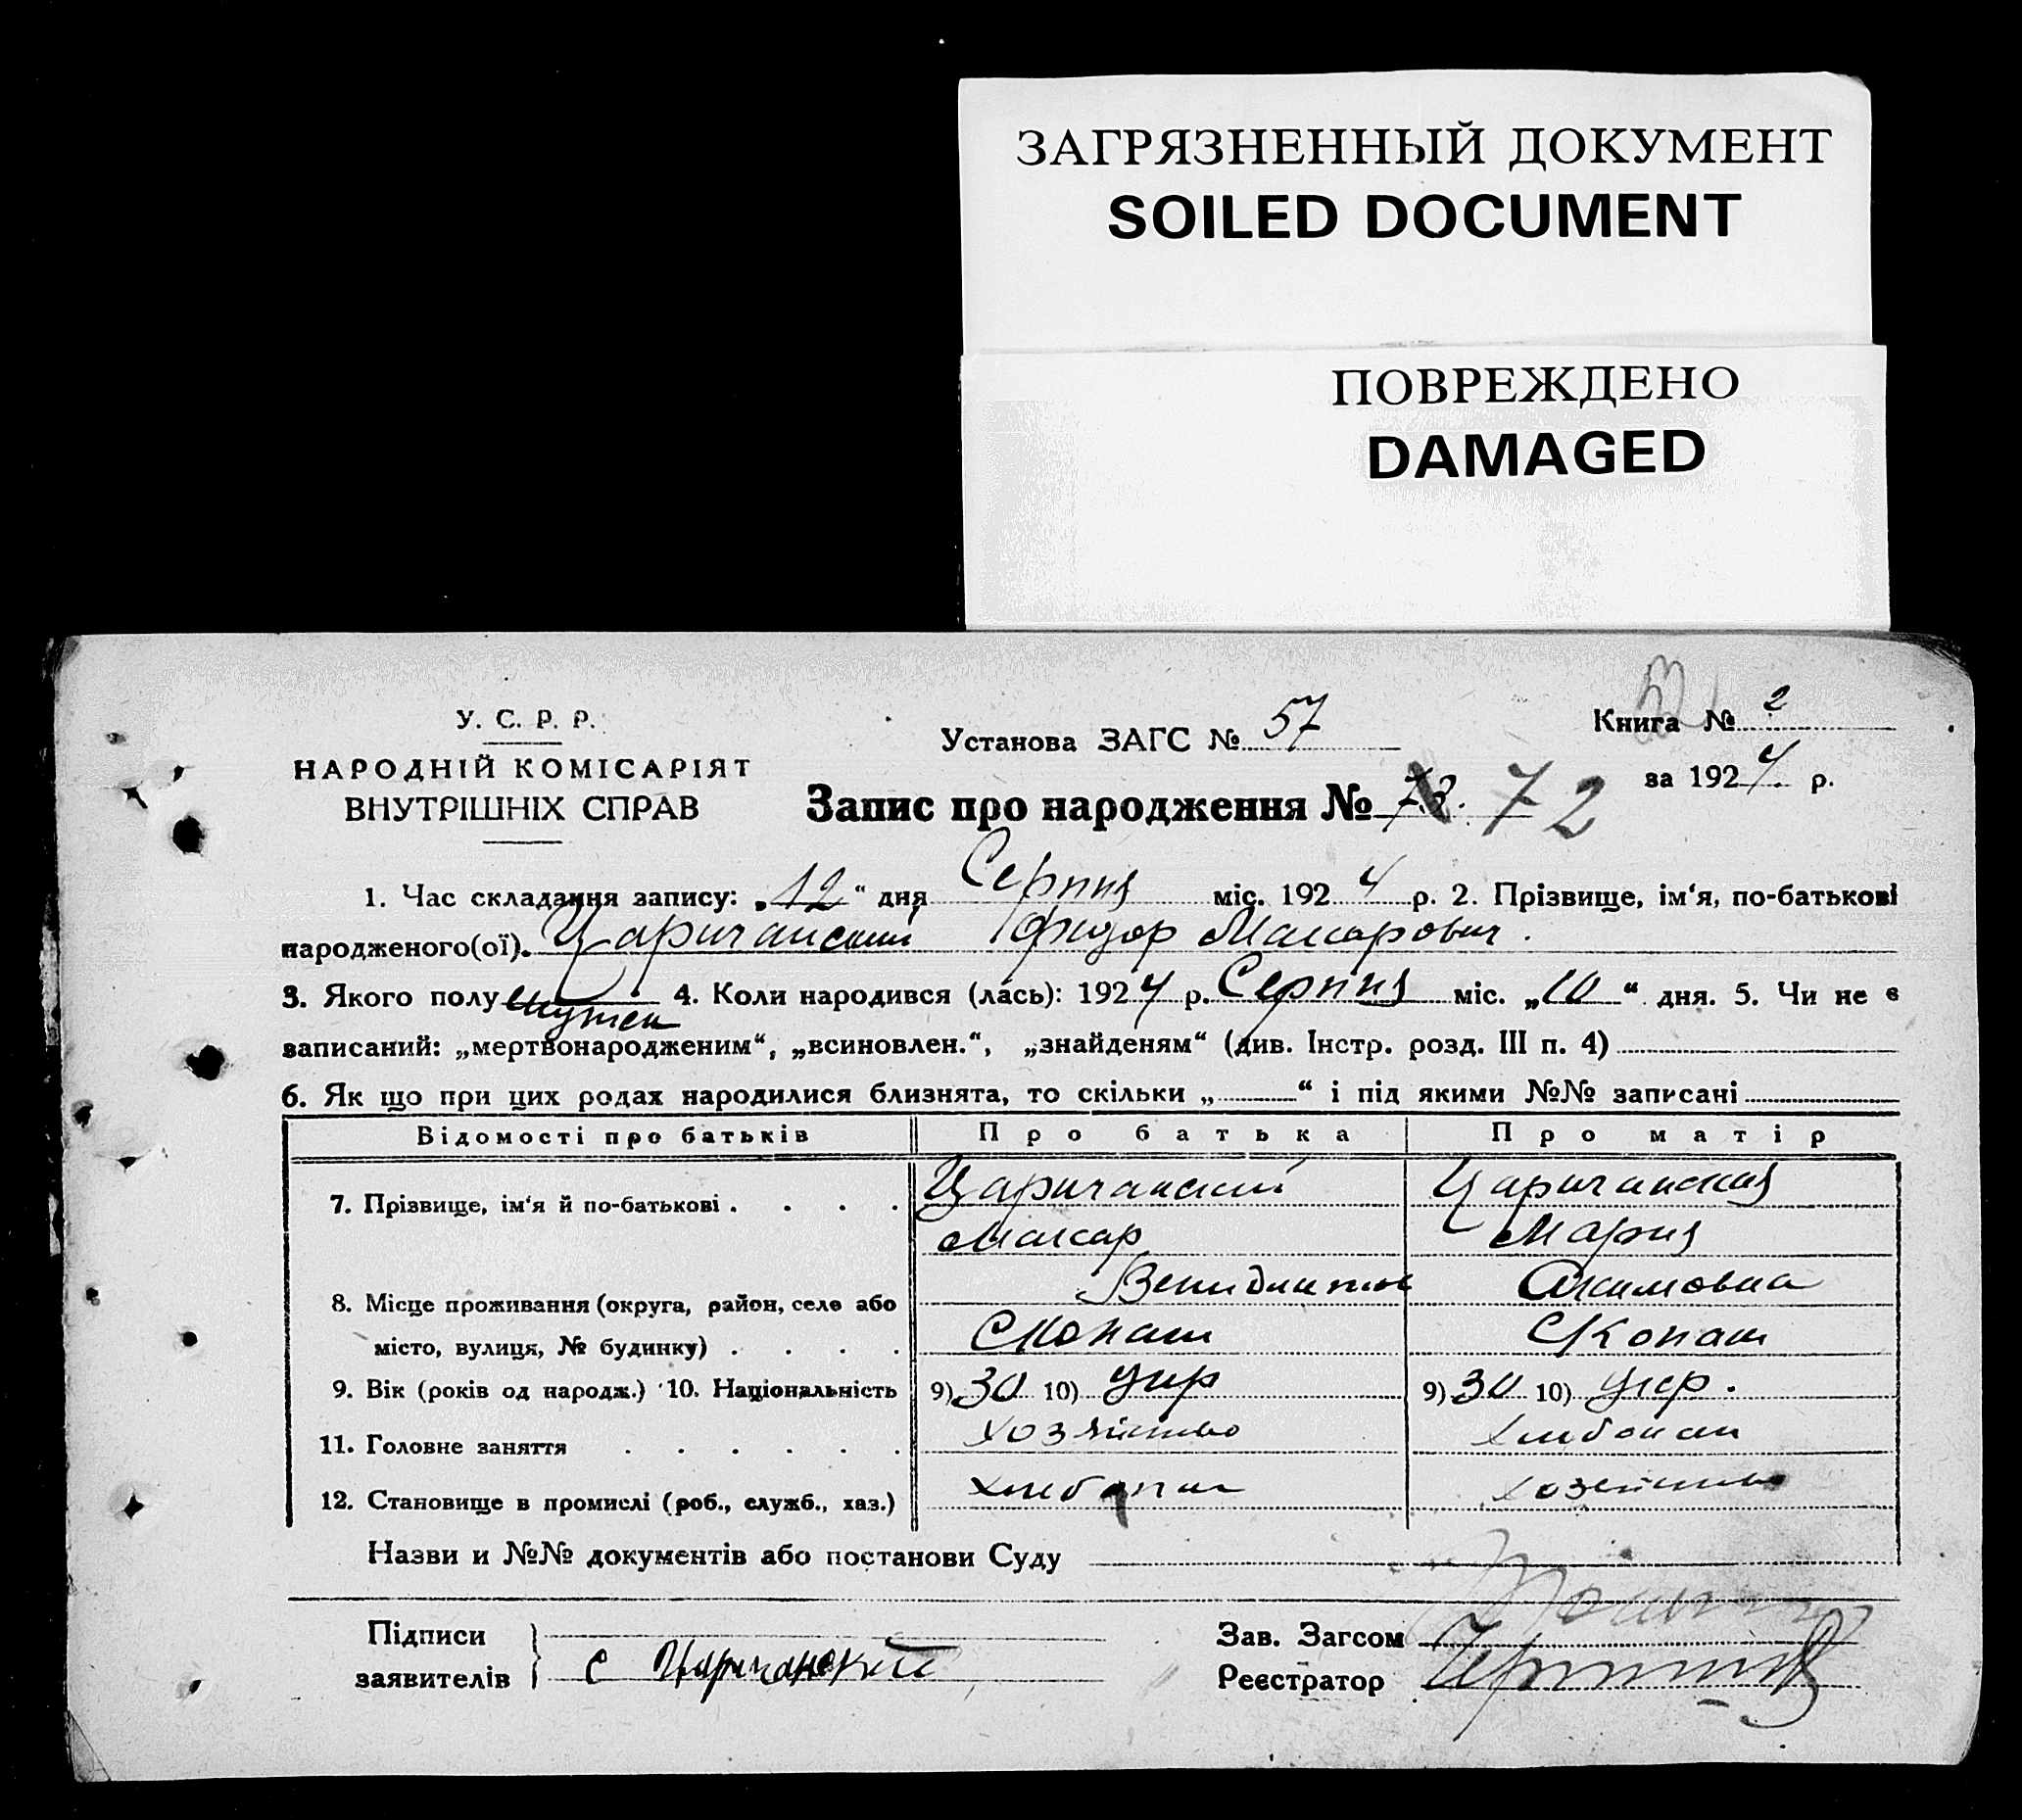 ЗАГРЯЗНЕННЫЙ ДОКУМЕНТ
SOILED DOCUMENT
ПОВРЕЖДЕНО
DAMAGED
У. С. Р. Р.
НАРОДНІЙ КОМІСАРІЯТ
ВНУТРІШНІХ СПРАВ
Установа ЗАГС № 57
Книга № 2
за 1924 р.
Запис про народження № 73. 72
1. Час складання запису: „12“ дня Серпня міс. 1924 р. 2. Прізвище, ім‘я, по-батькові
народженого(ої). Царичанский Фидор Макарович.
3. Якого полу мужск 4. Коли народився (лась): 1924 р. Серпня міс. „10“ дня. 5. Чи не є
записаний: „мертвонародженим“, „всиновлен.“, „знайденям“ (див. Інстр. розд. III п. 4)
6. Як що при цих родах народилися близнята, то скільки „ “ і під якими №№ записані
Відомості про батьків Про батька Про матір
7. Прізвище, ім‘я й по-батькові . . . . Царичанский Царичанская
Макар Мария
Акимовна
8. Місце проживання (округа, район, село або
місто, вулиця, № будинку) . . . .
9. Вік (років од народж.) 10. Національність 9) 30 10) Укр 9) 30 10) Укр.
11. Головне заняття . . . . . . хозяйство
12. Становище в промислі (роб., служб., хаз.)
Назви и №№ документів або постанови Суду
Підписи
заявителів } с Царичанский
Зав. Загсом
Реєстратор